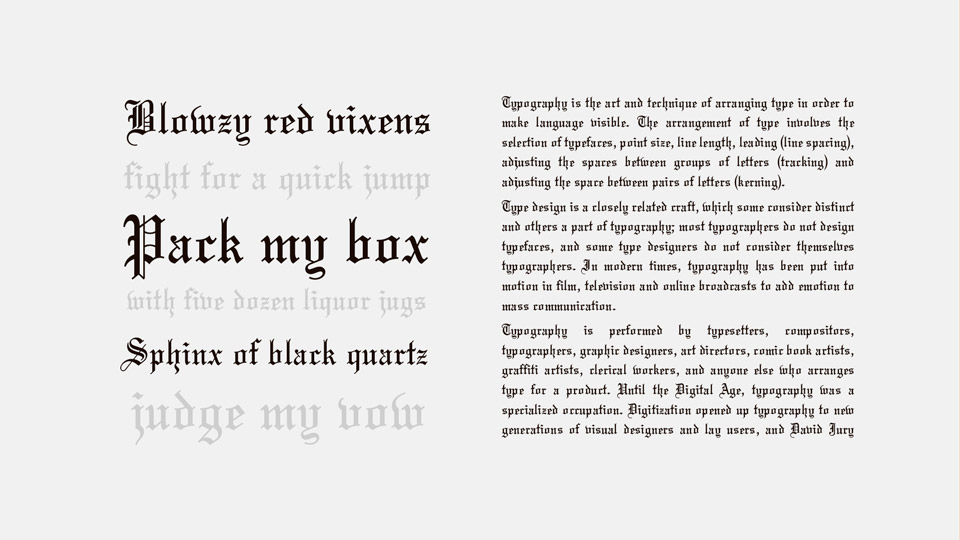 Blowzy red vixens
fight for a quick jump
Pack my box
with five dozen liquor jugs
Sphinx of black quartz
judge my vow
Typography is the art and technique of arranging type in order to
make language visible. The arrangement of type involves the
selection of typefaces, point size, line length, leading (line spacing),
adjusting the spaces between groups of letters (tracking) and
adjusting the space between pairs of letters (kerning).
Type design is a closely related craft, which some consider distinct
and others a part of typography; most typographers do not design
typefaces, and some type designers do not consider themselves
typographers. In modern times, typography has been put into
motion in film, television and online broadcasts to add emotion to
mass communication.
Typography is performed by typesetters, compositors,
typographers, graphic designers, art directors, comic book artists,
graffiti artists, clerical workers, and anyone else who arranges
type for a product. Until the Digital Age, typography was a
specialized occupation. Digitization opened up typography to new
generations of visual designers and lay users, and David Jury